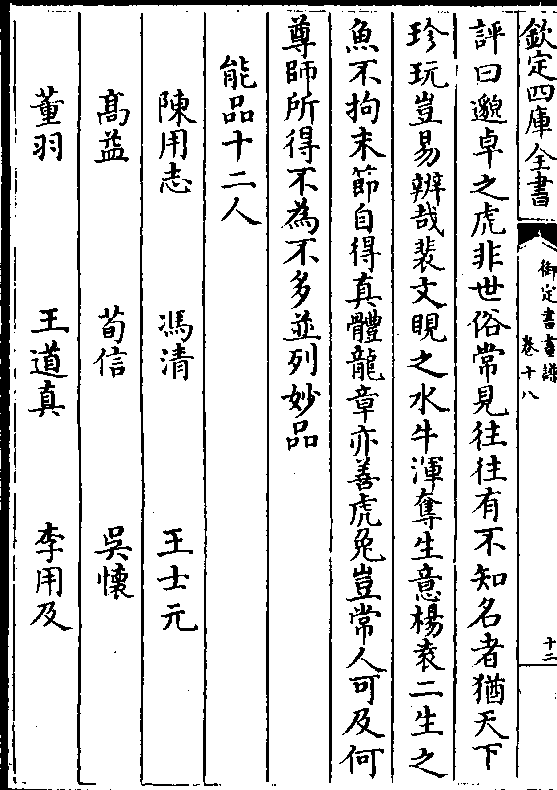 欽定四庫全書
御定書畫譜
卷十八
十二
評曰邈卓之虎非世俗常見往往有不知名者猶天下
珍玩豈易辨哉裴文睍之水牛渾奪生意楊袁二生之
魚不拘末節自得真體龍章亦善虎兔豈常人可及何
尊師所得不為不多並列妙品
能品十二人
陳用志 馮清 王士元
高益 荀信 吳懷
董羽 王道真 李用及